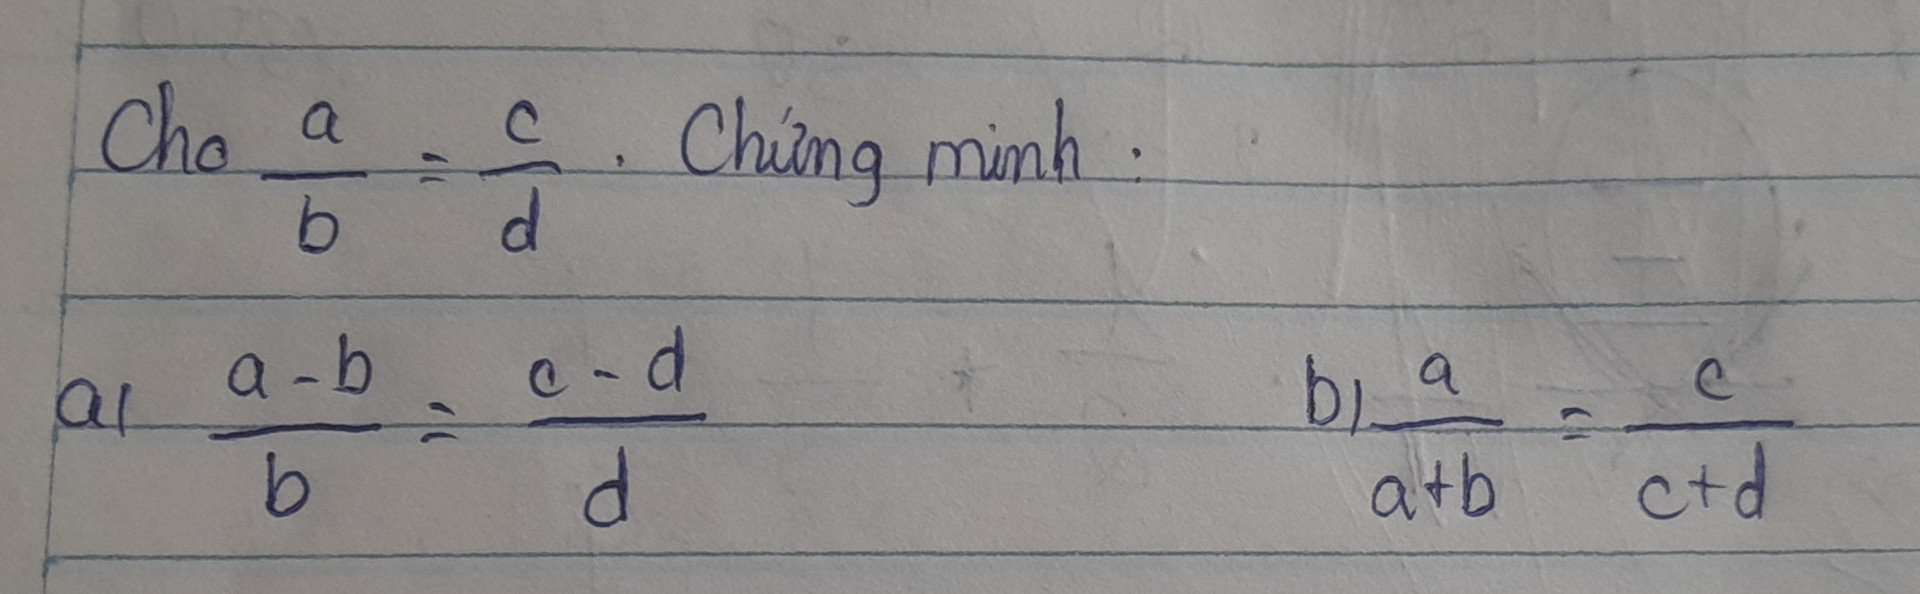 Cho a/b = c/d . Chứng minh :
a) (a-b)/b = (c-d)/d b) a/(a+b) = c/(c+d)